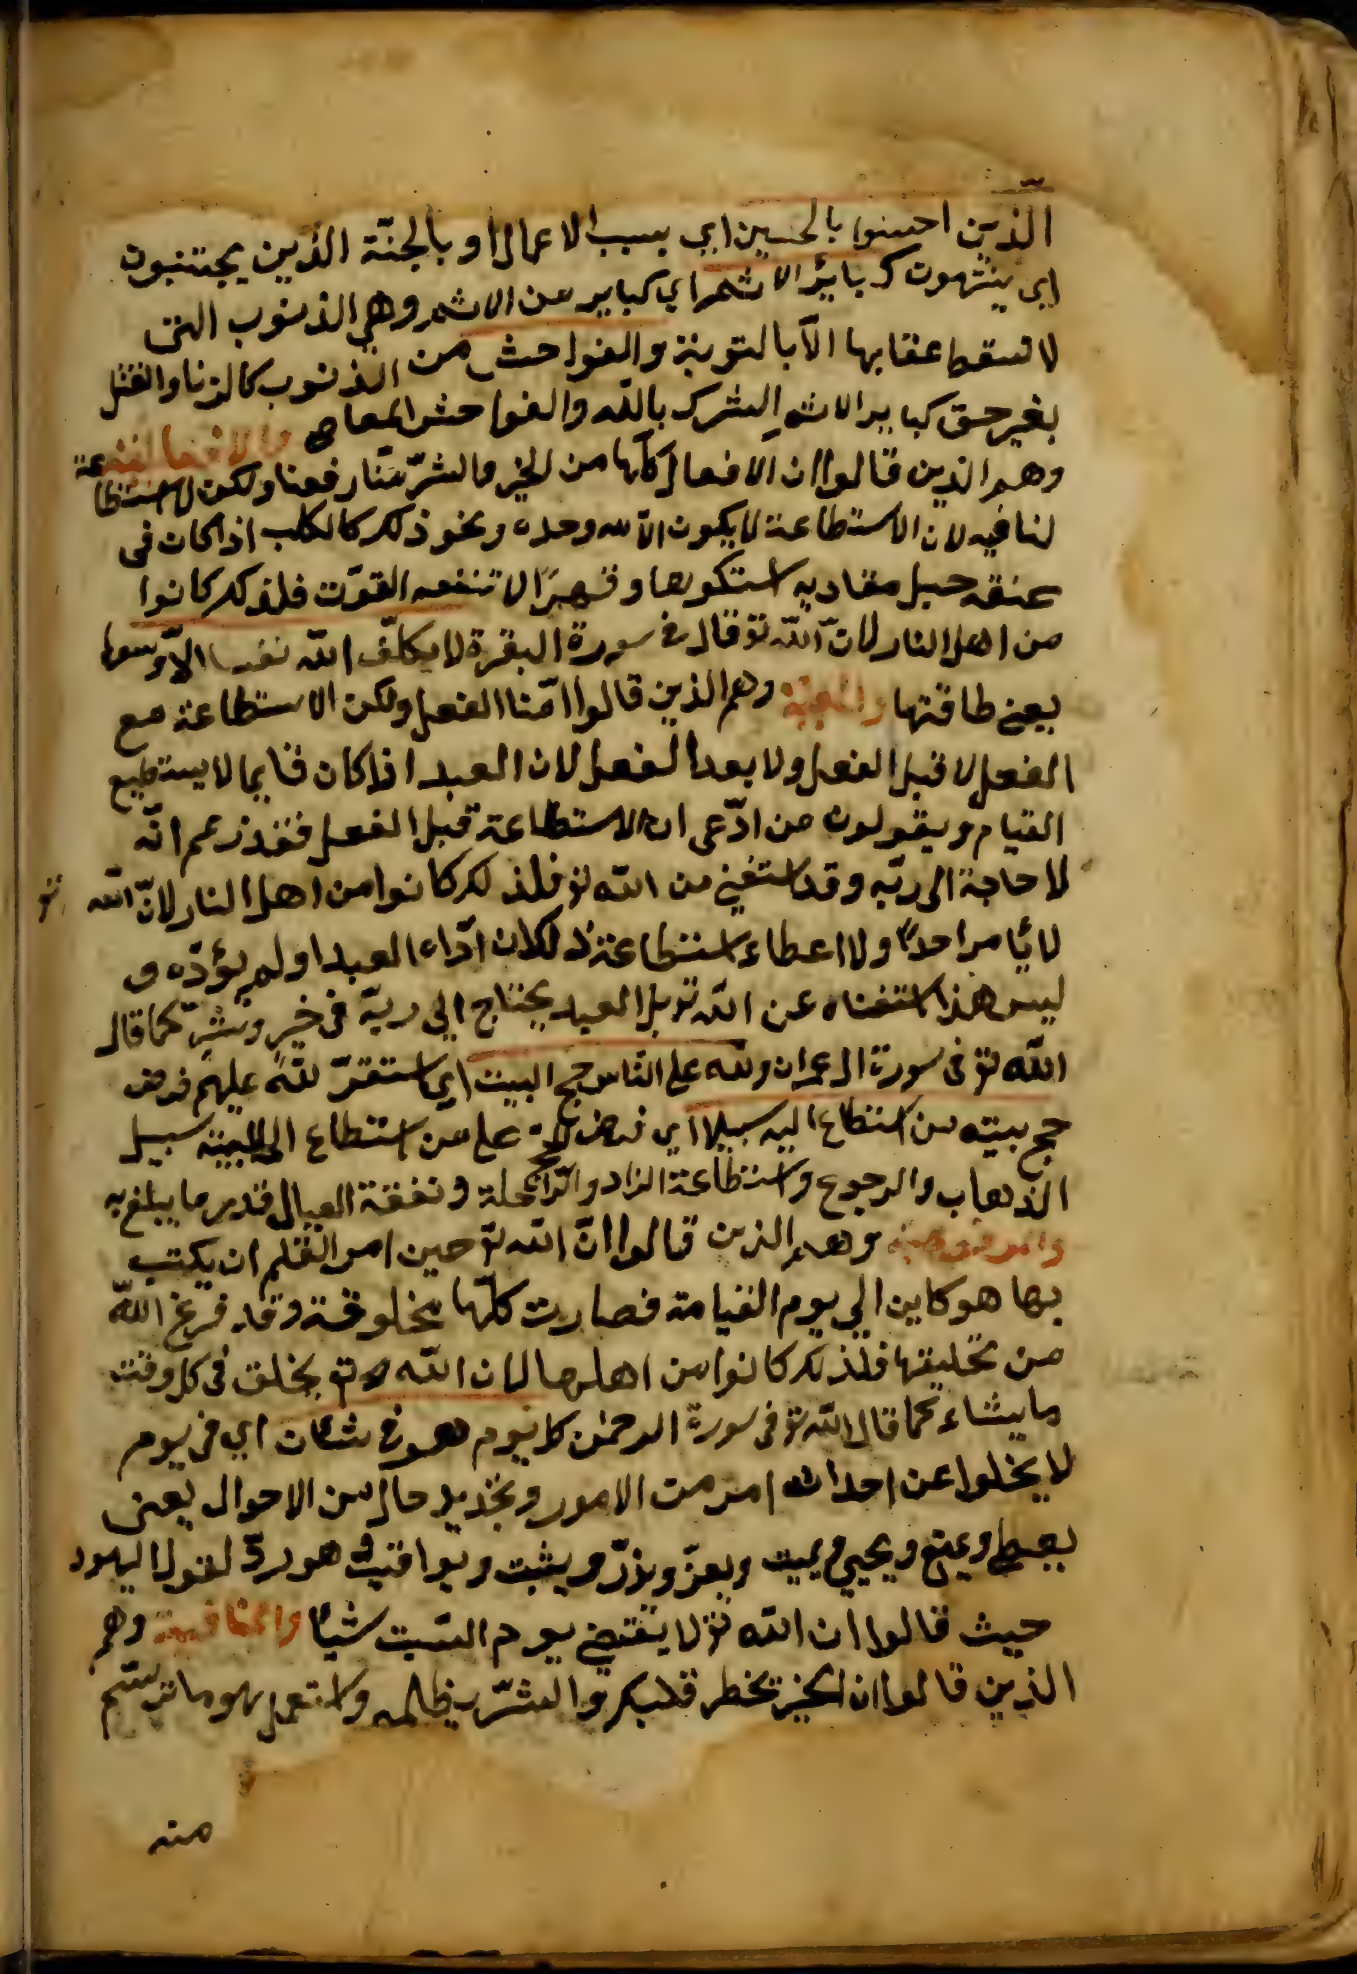 الذين احسنوا بالحسنى اي بسبب الاعمال او بالجنّة الذين يجتنبون
اي ينتهون كبائر الاثم اي كباير من الاثم وهي الذنوب التى
لا تسقط عقابها الّا بالتوبة والفواحش من الذنوب كالزنا والقتل
بغير حق كباير الاثم الشرك باللّه والفواحش المعاصي والافعالية
وهم الذين قالوا ان الافعال كلّها من الخير والشرّ منّا رفعنا ولكن لا استطاعة
لنا فيه لان الاستطاعة لا يكون الا لله وحده ونحو ذلك كالكلب اذا كان في
عنقه حبل مقاد به وقهرًا لا تنفعه القوّت فلذلك كانوا
من اهل النار لانّ اللّه تع قال في سورة البقرة لا يكلّف اللّه نفسا الّا وسعها
يعني طاقتها وهم الذين قالوا امّنا الفعل ولكن الاستطاعة مع
الفعل لا قبل الفعل ولا بعد الفعل لان العبد اذا كان قايما لا يستطيع
القيام ويقولون من ادّعى ان الاستطاعة قبل الفعل فقد زعم انّه
لا حاجة الى ربّه وقد استغني من اللّه تع فلذلك كانوا من اهل النار لانّ اللّه تع
لا يأمر احدًا ولا اعطاء استطاعة ذلك لان ادّاء العبد او لم يؤدّه و
ليس هذا استغناء عن اللّه تع بل العبد يحتاج الي ربّه في خيرٍ وشرٍ كما قال
اللّه تع في سورة ال عمران وللّه على النّاس حج البيت اي استقرّ للّه عليهم فرض
حج بيته من استطاع اليه سبيلا اي فرض الحج على من استطاع الى البيت سبيل
الذهاب والرجوع واستطاعة الزاد والرّاحلة ونفقة العيال قدر ما يبلغ به
وهم الذين قالوا انّ اللّه تع حين امر القلم ان يكتب
بها هو كاين الي يوم القيامة فصارت كلّها مخلوقة وقد فرغ اللّه
من تخليقها فلذلك كانوا من اهلها لان اللّه تع يخلق في كل وقت
ما يشاء كما قال اللّه تع في سورة الرحمن كل يوم هو في شان اي في يوم
لا يخلوا عن احداث امر من الامور وتجديد حال من الاحوال يعنى
يعطي ويمنع ويحيي ويميت ويعزّ ويذلّ ويثبت ويعاقب وهو ردّ لقول اليهود
حيث قالوا ان اللّه تع لا يقضي يوم السّبت شيًا وهم
الذين قالوا ان الخير يخطر قلبك والشرّ ولا تعمل بهوما
منه